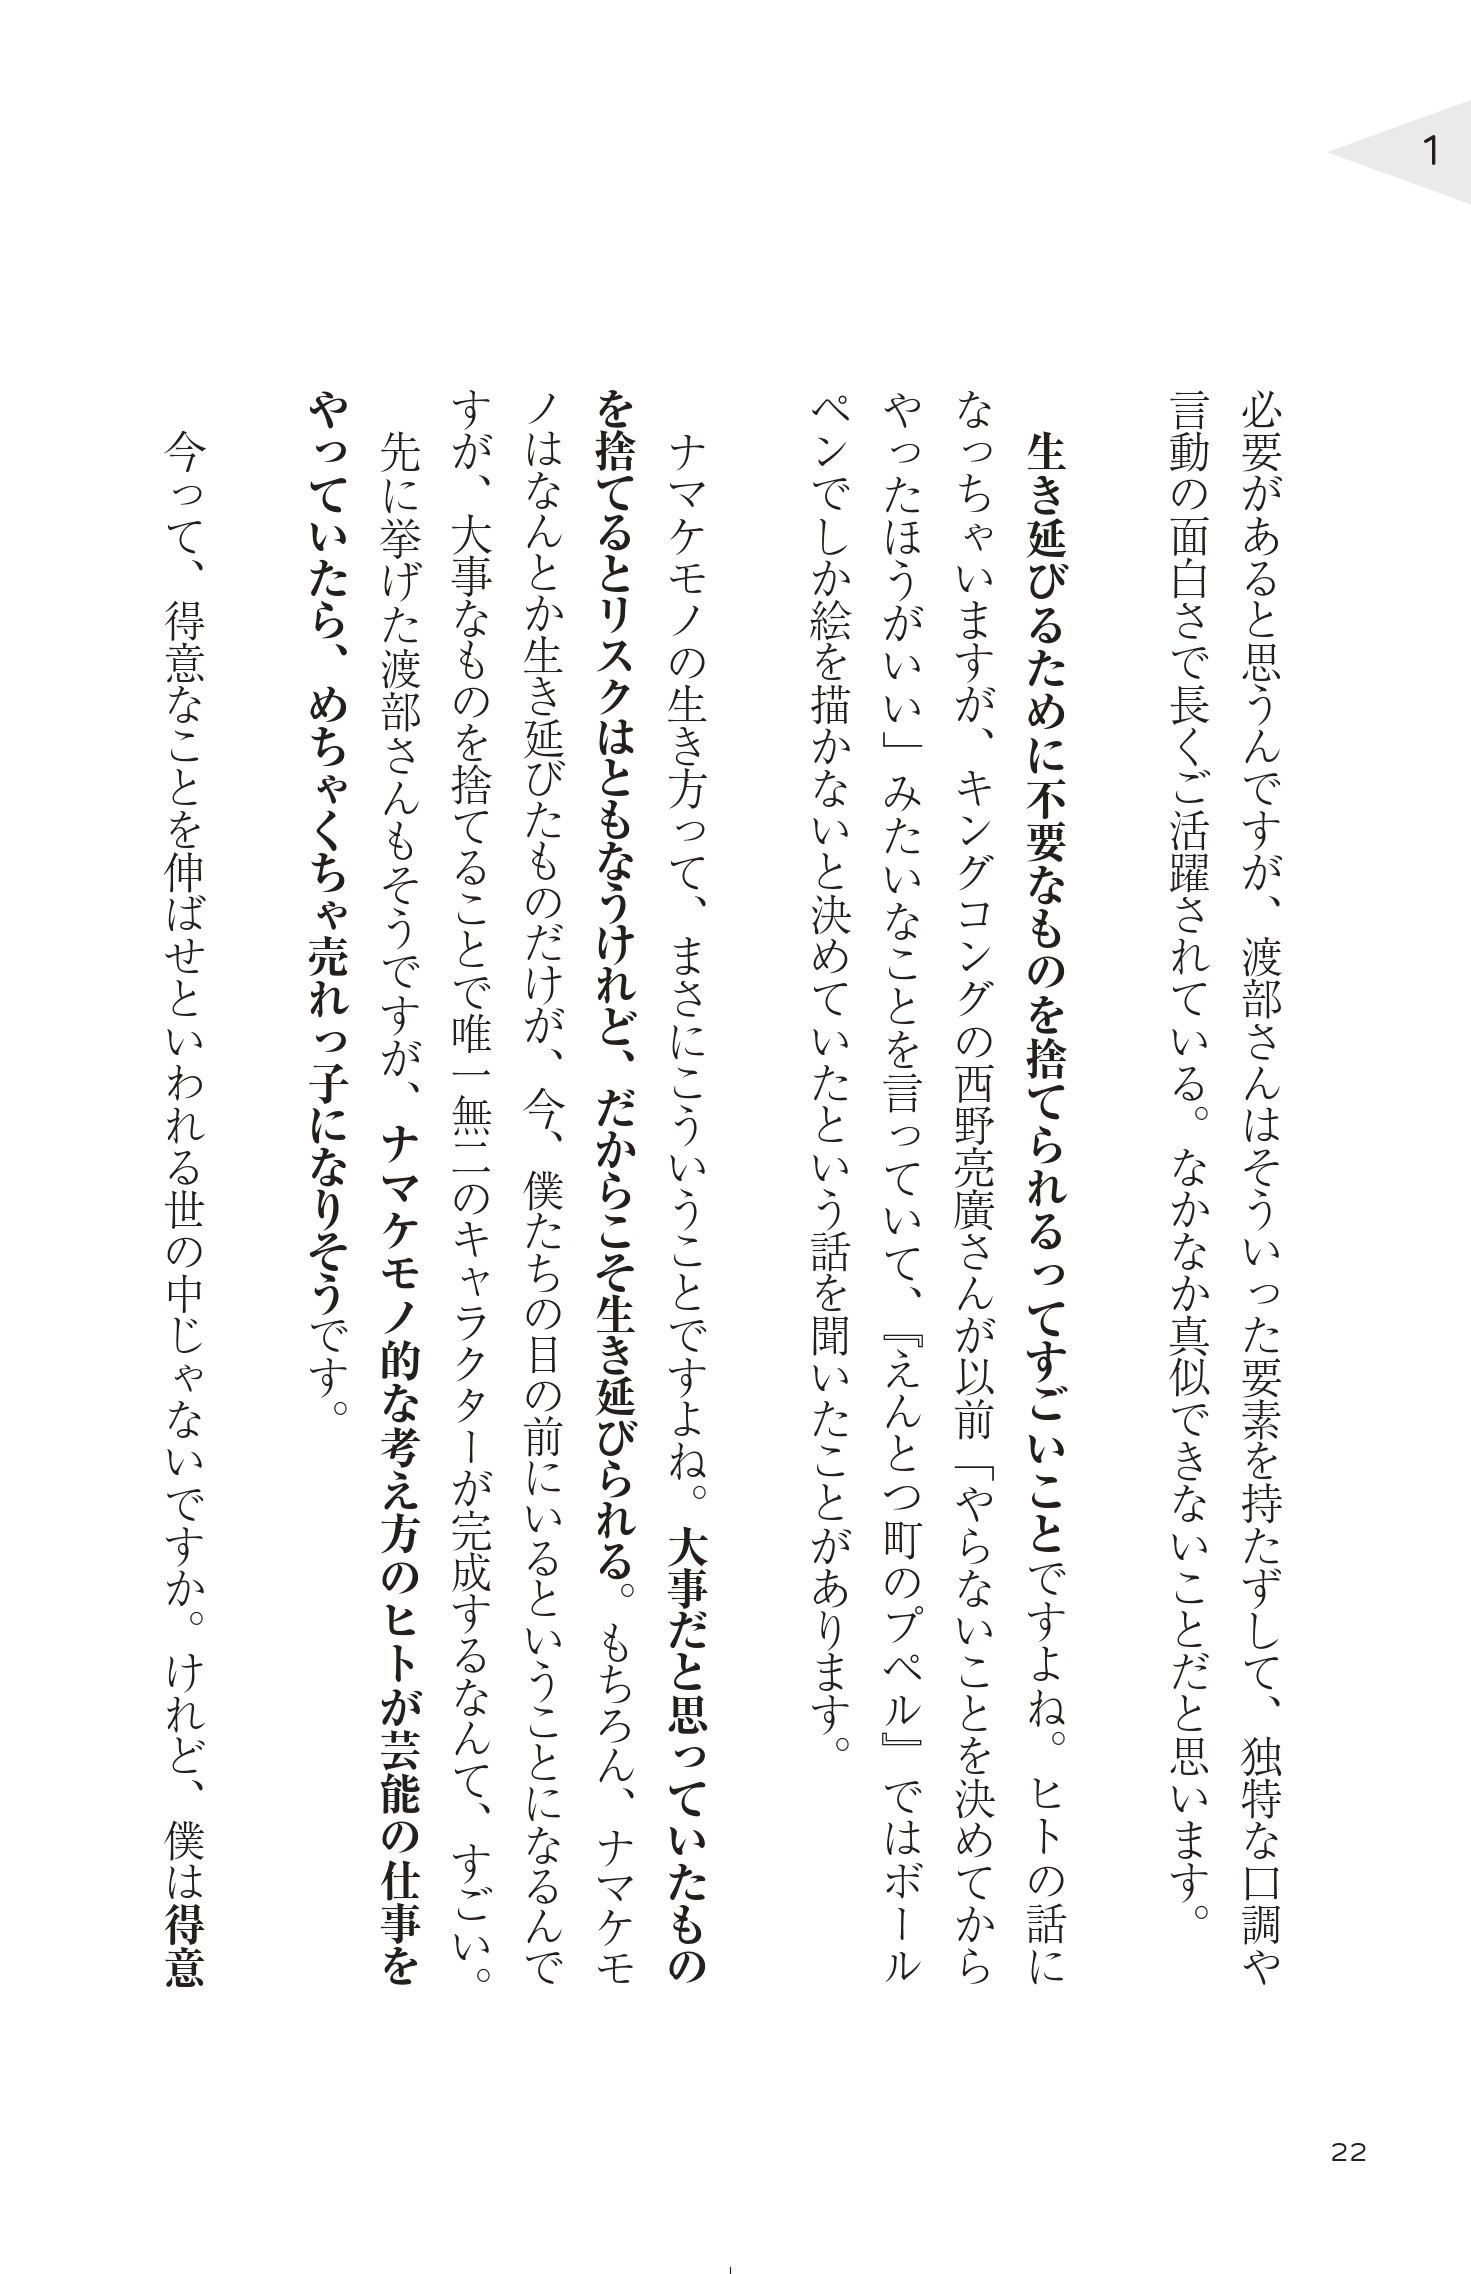 1
必要があると思うんですが、渡部さんはそういった要素を持たずして、独特な口調や
言動の面白さで長くご活躍されている。なかなか真似できないことだと思います。
生き延びるために不要なものを捨てられるってすごいことですよね。ヒトの話に
なっちゃいますが、キングコングの西野亮廣さんが以前「やらないことを決めてから
やったほうがいい」みたいなことを言っていて、『えんとつ町のプペル』ではボール
ペンでしか絵を描かないと決めていたという話を聞いたことがあります。
ナマケモノの生き方って、まさにこういうことですよね。大事だと思っていたもの
を捨てるとリスクはともなうけれど、だからこそ生き延びられる。もちろん、ナマケモ
ノはなんとか生き延びたものだけが、今、僕たちの目の前にいるということになるんで
すが、大事なものを捨てることで唯一無二のキャラクターが完成するなんて、すごい。
先に挙げた渡部さんもそうですが、ナマケモノ的な考え方のヒトが芸能の仕事を
やっていたら、めちゃくちゃ売れっ子になりそうです。
今って、得意なことを伸ばせといわれる世の中じゃないですか。けれど、僕は得意
22